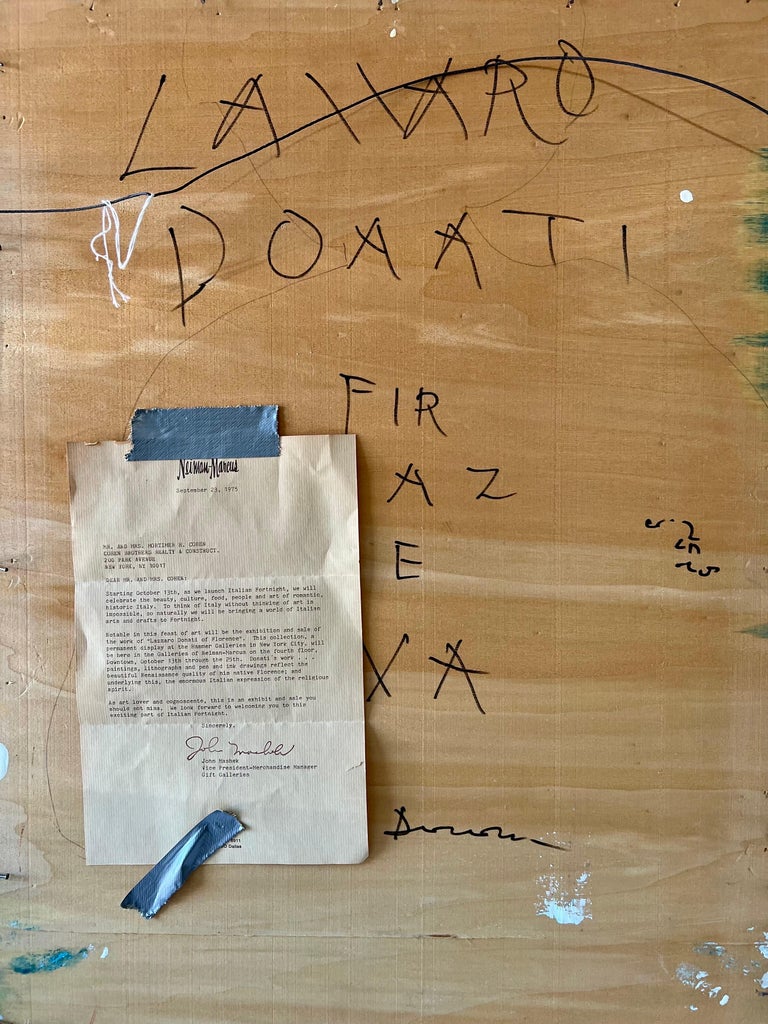 LAZZARO
DONATI
FIR
AZ
E
VA
Neiman-Marcus
September 23, 1975
MR. AND MRS. MORTIMER H. COHEN
COHEN BROTHERS REALTY & CONSTRUCT.
200 PARK AVENUE
NEW YORK, NY 10017
DEAR MR. AND MRS. COHEN:
Starting October 13th, as we launch Italian Fortnight, we will
celebrate the beauty, culture, food, people and art of romantic,
historic Italy. To think of Italy without thinking of art is
impossible, so naturally we will be bringing a world of Italian
arts and crafts to Fortnight.
Notable in this feast of art will be the exhibition and sale of
the work of "Lazzaro Donati of Florence". This collection, a
permanent display at the Hammer Galleries in New York City, will
be here in the Galleries of Neiman-Marcus on the fourth floor,
Downtown, October 13th through the 25th. Donati's work . . .
paintings, lithographs and pen and ink drawings reflect the
beautiful Renaissance quality of his native Florence; and
underlying this, the enormous Italian expression of the religious
spirit.
As art lover and cognoscente, this is an exhibit and sale you
should not miss. We look forward to welcoming you to this
exciting part of Italian Fortnight.
Sincerely,
John Mashek
John Mashek
Vice President-Merchandise Manager
Gift Galleries
Dallas